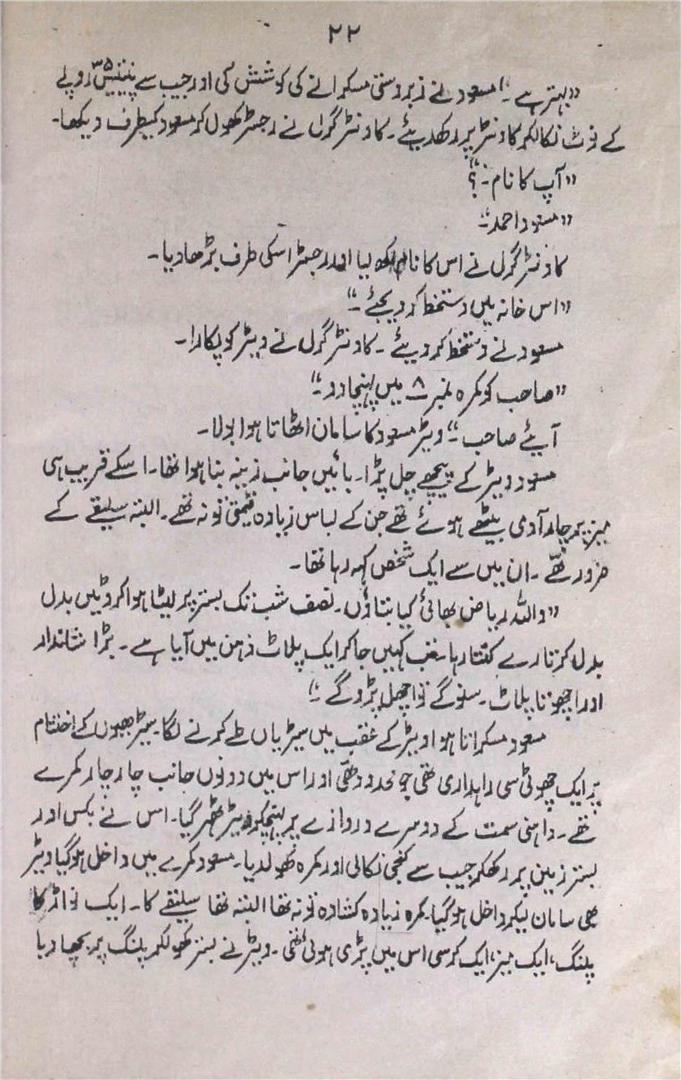 ۲۲
”بہتر ہے۔“ مسعود نے زبردستی مسکرانے کی کوشش کی اور جیب سے پینتیس ۳۵ روپے
کے نوٹ نکالکر کاونٹر پر رکھدیئے۔ کاونٹر گرل نے رجسٹر کھول کر مسعود کیطرف دیکھا۔
”آپ کا نام۔؟“
”مسعود احمد۔“
کاونٹر گرل نے اس کا نام لکھ لیا اور رجسٹر اسکی طرف بڑھادیا۔
”اس خانہ میں دستخط کر دیجئے۔“
مسعود نے دستخط کر دیئے۔ کاونٹر گرل نے ویٹر کو پکارا۔
”صاحب کو کمرہ نمبر ۸ میں پہنچادو۔“
آیئے صاحب۔“ ویٹر مسعود کا سامان اٹھاتا ہوا بولا۔
مسعود ویٹر کے پیچھے چل پڑا۔ بائیں جانب زینہ بنا ہوا تھا۔ اسکے قریب ہی
میز پر چار آدمی بیٹھے ہوئے تھے جن کے لباس زیادہ قیمتی تو نہ تھے۔ البتہ سلیقے کے
ضرور تھے۔ ان میں سے ایک شخص کہہ رہا تھا۔
”واللہ ریاض بھائی کیا بتاؤں۔ نصف شب تک بستر پر لیٹا ہوا کروٹیں بدل
بدل کر تارے گنتا رہا۔ تب کہیں جا کر ایک پلاٹ ذہن میں آیا ہے۔ بڑا شاندار
اور اچھوتا پلاٹ۔ سنو گے تو اچھل پڑو گے۔“
مسعود مسکراتا ہوا ویٹر کے عقب میں سیڑیاں طے کرنے لگا۔ سیڑھیوں کے اختتام
پر ایک چھوٹی سی راہداری تھی جو محدود تھی اور اس میں دونوں جانب چار چار کمرے
تھے۔ داہنی سمت کے دوسرے دروازے پر پہنچکر ویٹر ٹھہر گیا۔ اس نے بکس اور
بستر زمین پر رکھکر جیب سے کنجی نکالی اور کمرہ کھولدیا۔ مسعود کمرے میں داخل ہو گیا ویٹر
بھی سامان لیکر داخل ہو گیا۔ کمرہ زیادہ کشادہ تو نہ تھا البتہ تھا سلیقے کا۔ ایک نواڑ کا
پلنگ، ایک میز، ایک کرسی اس میں پڑی ہوئی تھی۔ ویٹر نے بستر کھولکر پلنگ پر بچھا دیا